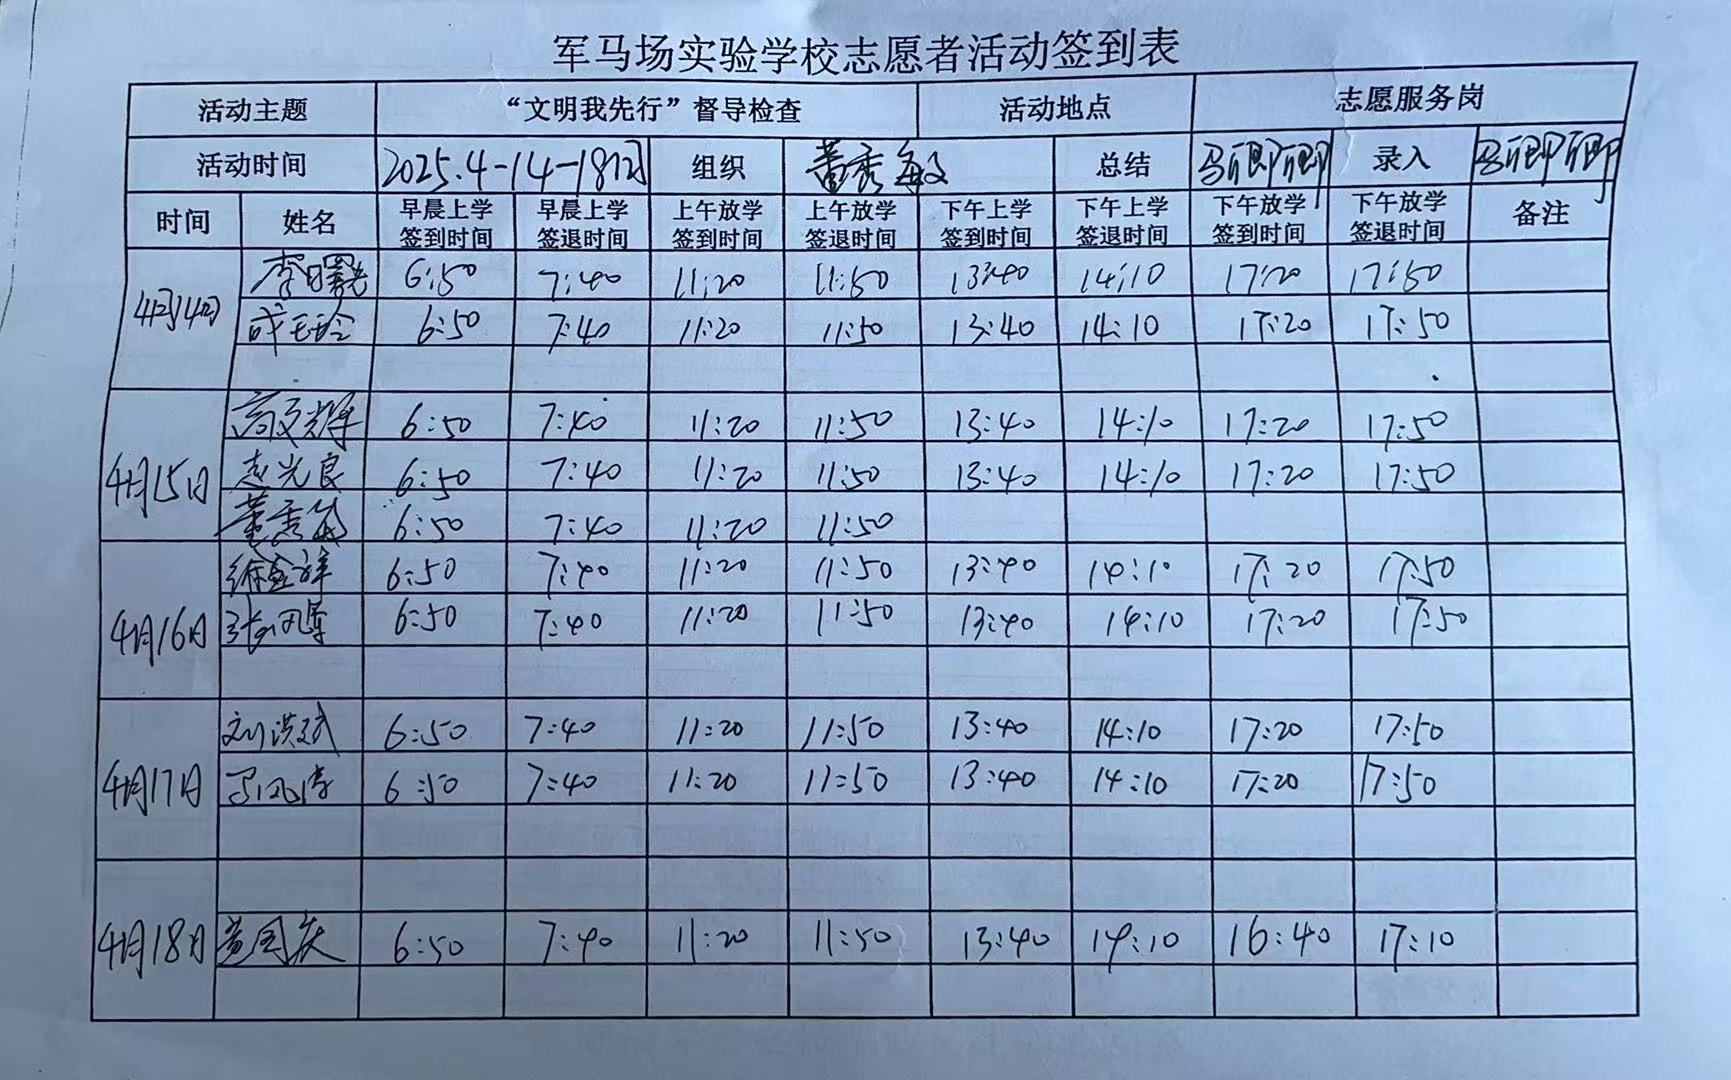 军马场实验学校志愿者活动签到表
活动主题 “文明我先行”督导检查 活动地点 志愿服务岗
活动时间 2025.4-14-18日 组织 董秀敏 总结 马丽丽 录入 马丽丽
时间 姓名 早晨上学签到时间 早晨上学签退时间 上午放学签到时间 上午放学签退时间 下午上学签到时间 下午上学签退时间 下午放学签到时间 下午放学签退时间 备注
4月14日 李曙光 6:50 7:40 11:20 11:50 13:40 14:10 17:20 17:50
成玉玲 6:50 7:40 11:20 11:50 13:40 14:10 17:20 17:50
4月15日 高文辉 6:50 7:40 11:20 11:50 13:40 14:10 17:20 17:50
赵光良 6:50 7:40 11:20 11:50 13:40 14:10 17:20 17:50
董秀敏 6:50 7:40 11:20 11:50
4月16日 徐金祥 6:50 7:40 11:20 11:50 13:40 14:10 17:20 17:50
6:50 7:40 11:20 11:50 13:40 14:10 17:20 17:50
4月17日 刘洪斌 6:50 7:40 11:20 11:50 13:40 14:10 17:20 17:50
6:50 7:40 11:20 11:50 13:40 14:10 17:20 17:50
4月18日 黄国庆 6:50 7:40 11:20 11:50 13:40 14:10 16:40 17:10